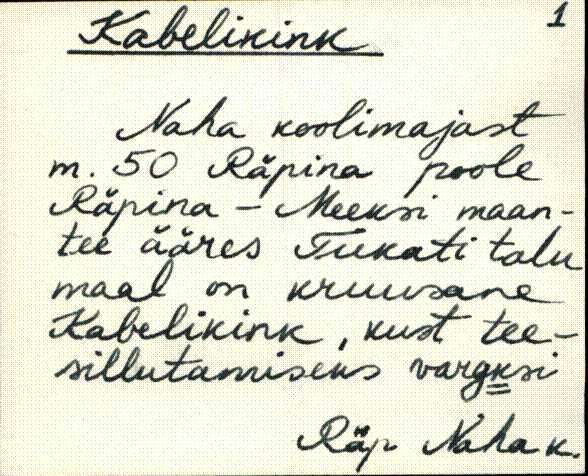 1
Kabelikink
Naha koolimajast
m. 50 Räpina poole
Räpina - Meeksi maan-
tee ääres Tiikati talu
maal on kruusane
Kabelikink, kust tee-
sillutamiseks vargksi
Räp Naha k.